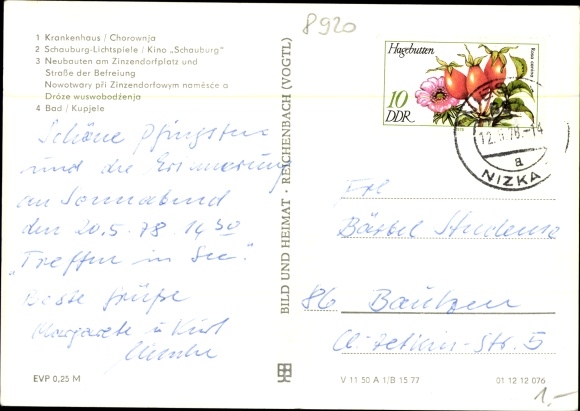 8920
1 Krankenhaus / Chorownja
2 Schauburg-Lichtspiele / Kino „Schauburg"
3 Neubauten am Zinzendorfplatz und
Straße der Befreiung
Nowotwary při Zinzendorfowym naměsće a
Dróze wuswobodźenja
4 Bad / Kupjele
Schöne Pfingsten
und die Erinnerung
an Sonnabend
den 20.5.78 14 30
"Treffen in See".
Beste Grüße
Margarete u. Kurt
EVP 0,25 M
BILD UND HEIMAT · REICHENBACH (VOGTL)
Hagebutten
Rosa canina
10
DDR
12.5.78.-14
a
NIZKA
Frl
Bärbel
86 Bautzen
Cl.-Zetkin-Str. 5
V 11 50 A 1/B 15 77
01 12 12 076
1,-